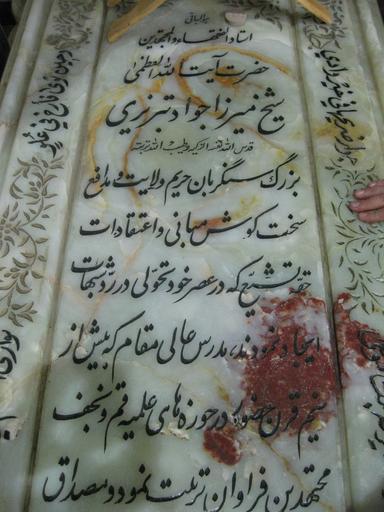 هو الباقی
استاد الفقهاء والمجتهدین
حضرت آیت الله العظمی
شیخ میرزا جواد تبریزی
قدس الله نفسه الزکیه وطیب الله تربته
بزرگ سنگربان حریم ولایت و مدافع
سخت کوش مبانی و اعتقادات
حقه تشیع که در عصر خود تحولی در رد شبهات
ایجاد نمودند، مدرس عالی مقام که بیش از
نیم قرن حضور در حوزه های علمیه قم و نجف
مجتهدین فراوان تربیت نمود و مصداق